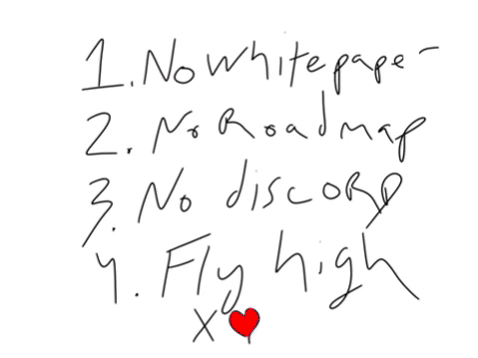 1. No whitepaper
2. No Roadmap
3. No discorD
4. Fly high
X ❤